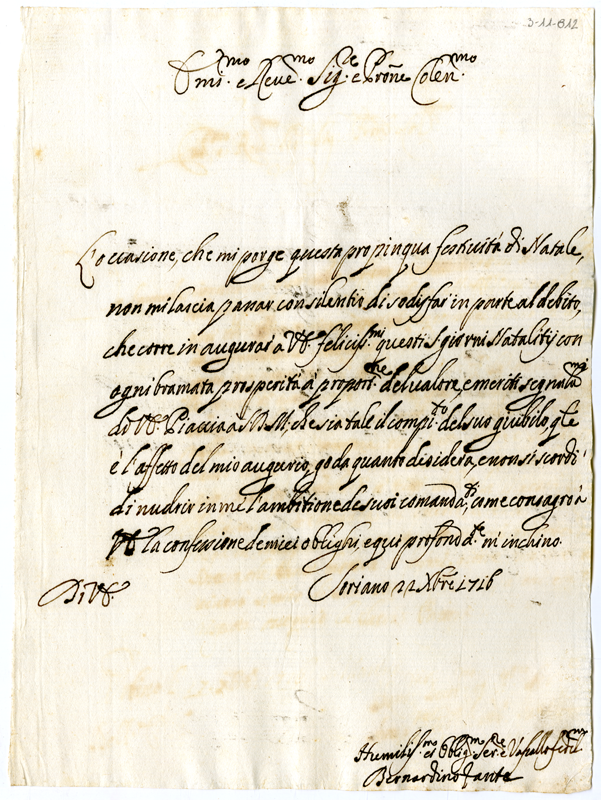 3-11-812
Em.mo e Reve.mo Sig.re e Prōne Colen.mo
L'occasione, che mi porge questa propinqua festiuità di Natale,
non mi lascia passar con silentio di sodisfar in parte al debito,
che corre in augurar à VE. felicis.mi questi S. giorni Natalitij con
ogni bramata prosperità à proport.ne del valore, e meriti segnala.mi
di VE. Piaccia à S.D.M. che sia tale il compi.to del suo giubilo, q.le
è l'affetto del mio augurio, goda quanto desidera, e non si scordi
di nudrir in me l'ambitione de suoi comanda.ti, come consagro à
VE la confessione de miei oblighi, e qui profond.te m'inchino.
Di VE.
Soriano 22 Xbre 1716
Humilis.mo et Oblig.mo Ser.re e Vassallo fedel.mo
Bernardino Fante